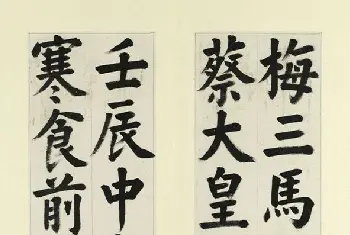 梅三馬
蔡大皇
壬辰中
寒食前